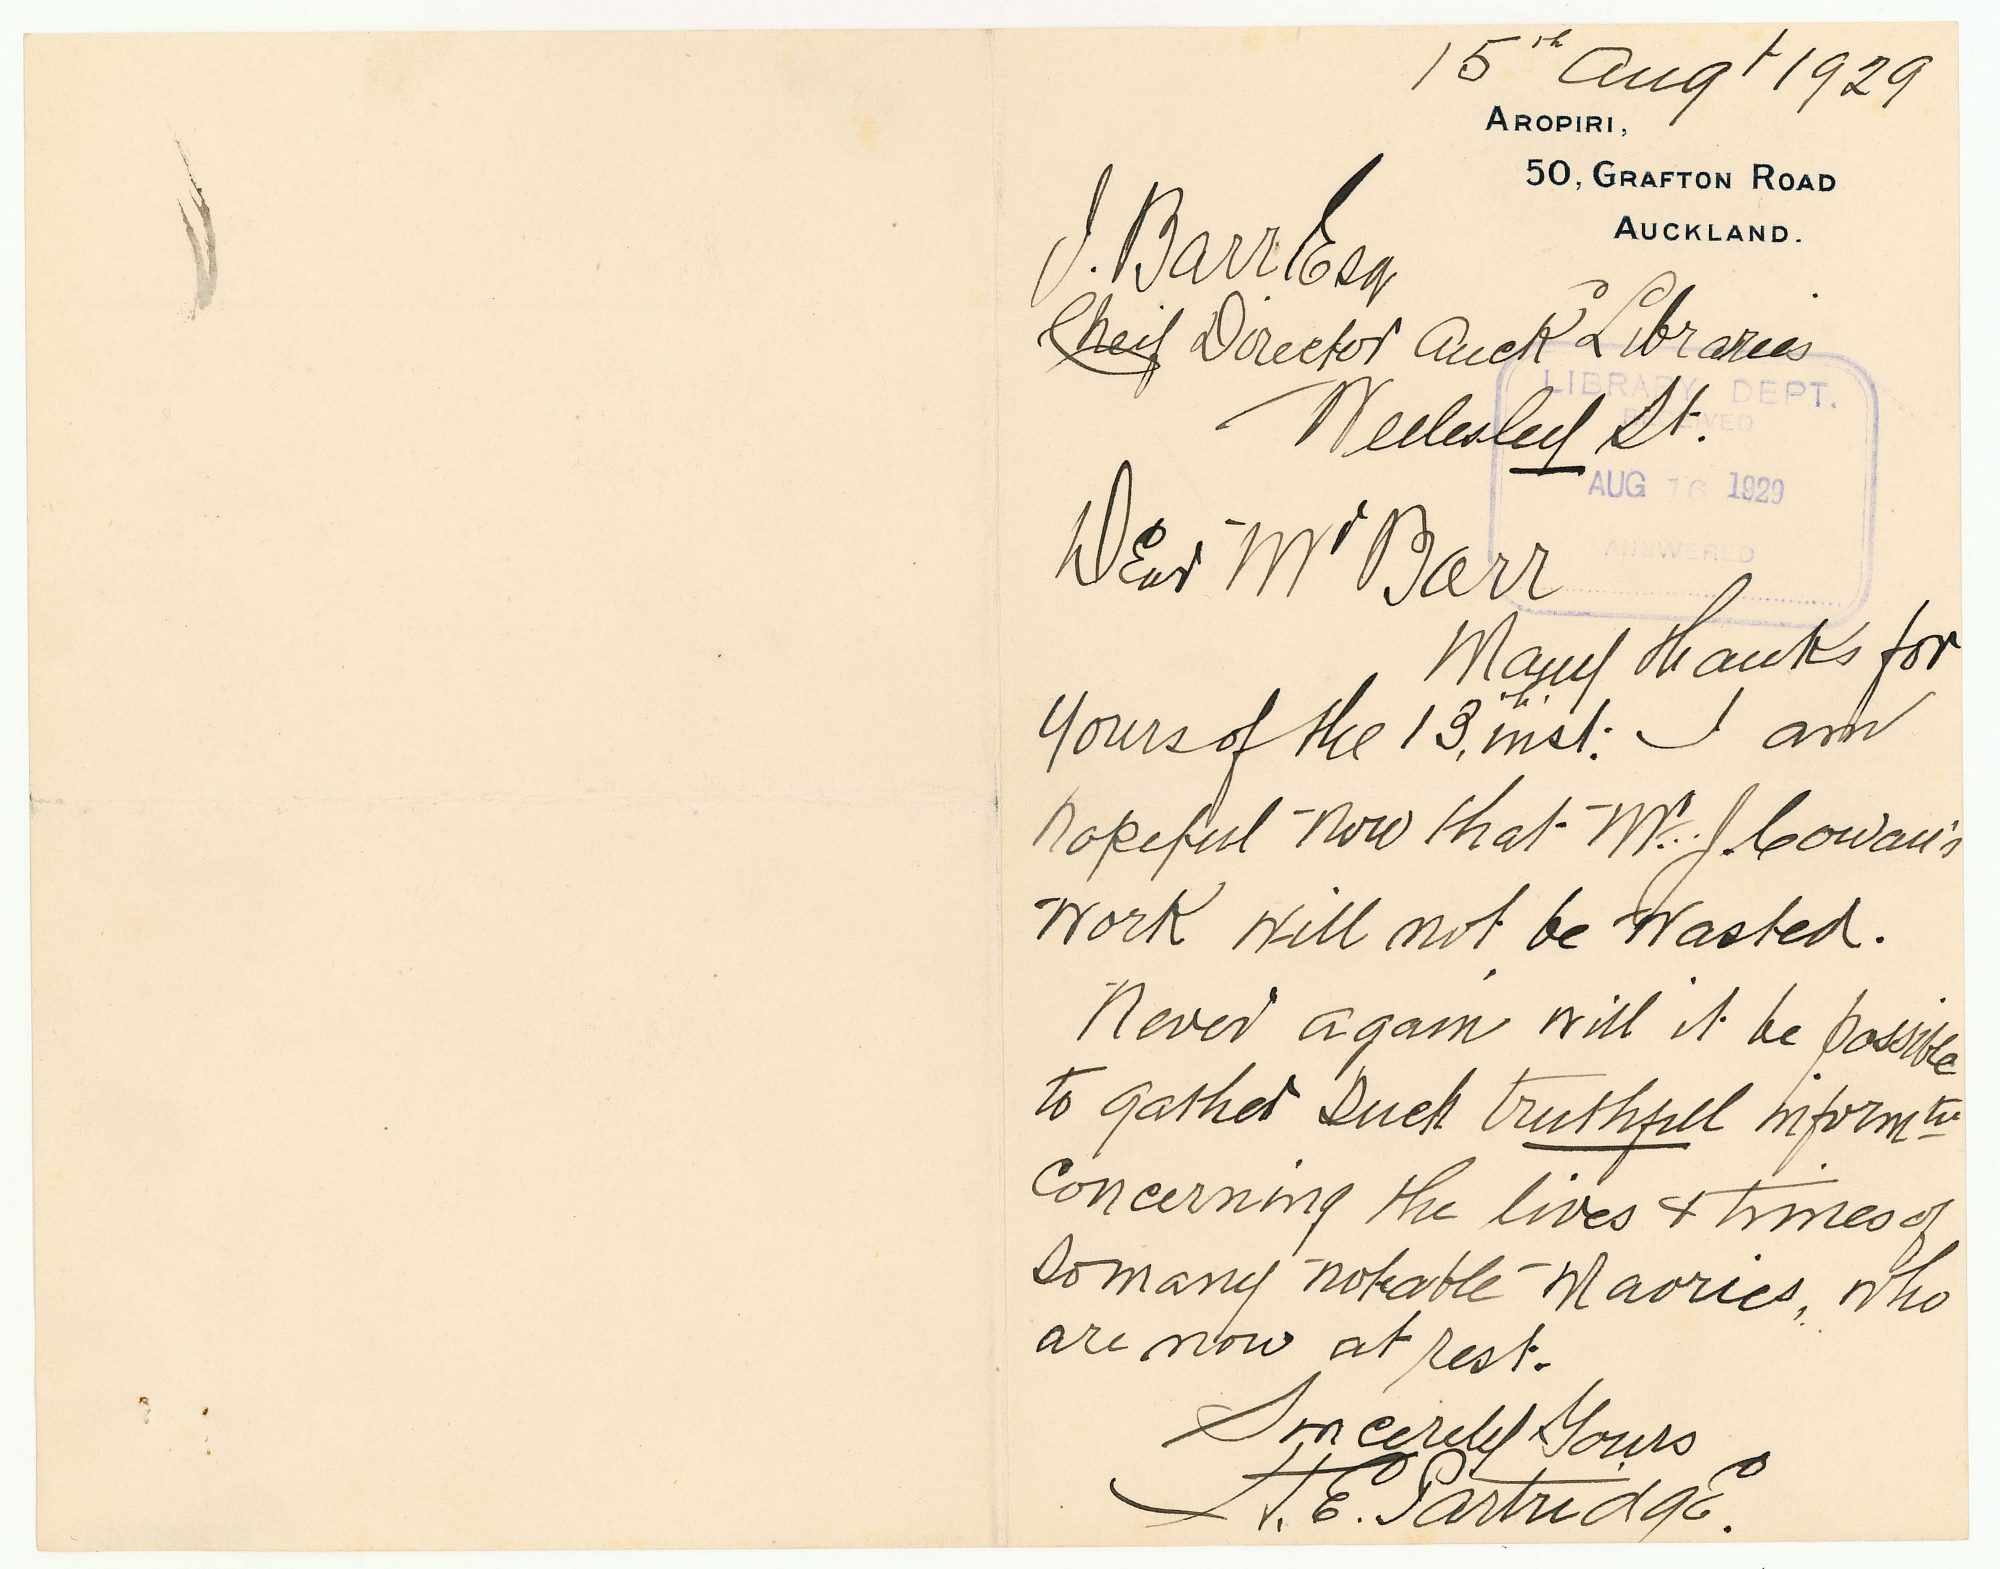 15th Augt 1929
AROPIRI,
50, GRAFTON ROAD
AUCKLAND.
J. Barr Esq
Cheif Director Auckd Libraries
Wellesley St.
LIBRARY DEPT.
RECEIVED
AUG 16 1929
ANSWERED
Dear Mr Barr
Many thanks for
yours of the 13th inst: I am
hopeful now that Mr. J. Cowan's
work will not be wasted.
Never again will it be possible
to gather such truthful informtn
concerning the lives & times of
so many notable Maories, who
are now at rest.
Sincerely Yours
H. E. Partridge.